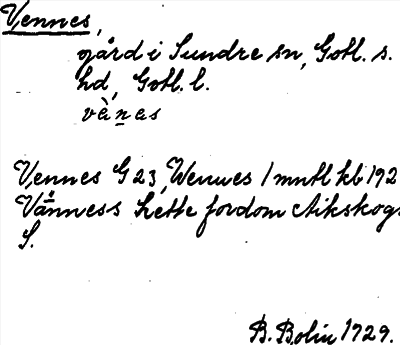 Vennes,
gård i Sundre sn, Gotl. s.
hd, Gotl. l.
vànas
Vennes G 23, Wennes 1 mntl kb 192
Vänness hette fordom Aikskogs
S.
B. Bolin 1929.